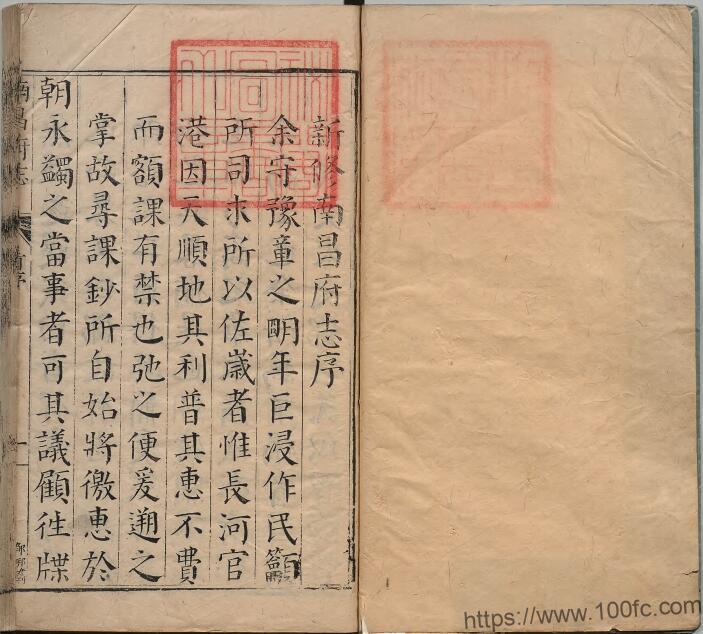 新修南昌府志序
余守豫章之明年巨浸作民籲
所司求所以佐歲者惟長河官
港因天順地其利普其惠不費
而額課有禁也弛之便爰遡之
掌故尋課鈔所自始將徼惠於
朝永蠲之當事者可其議顧徃牒
南昌府志
首序
一
https://www.100fc.com